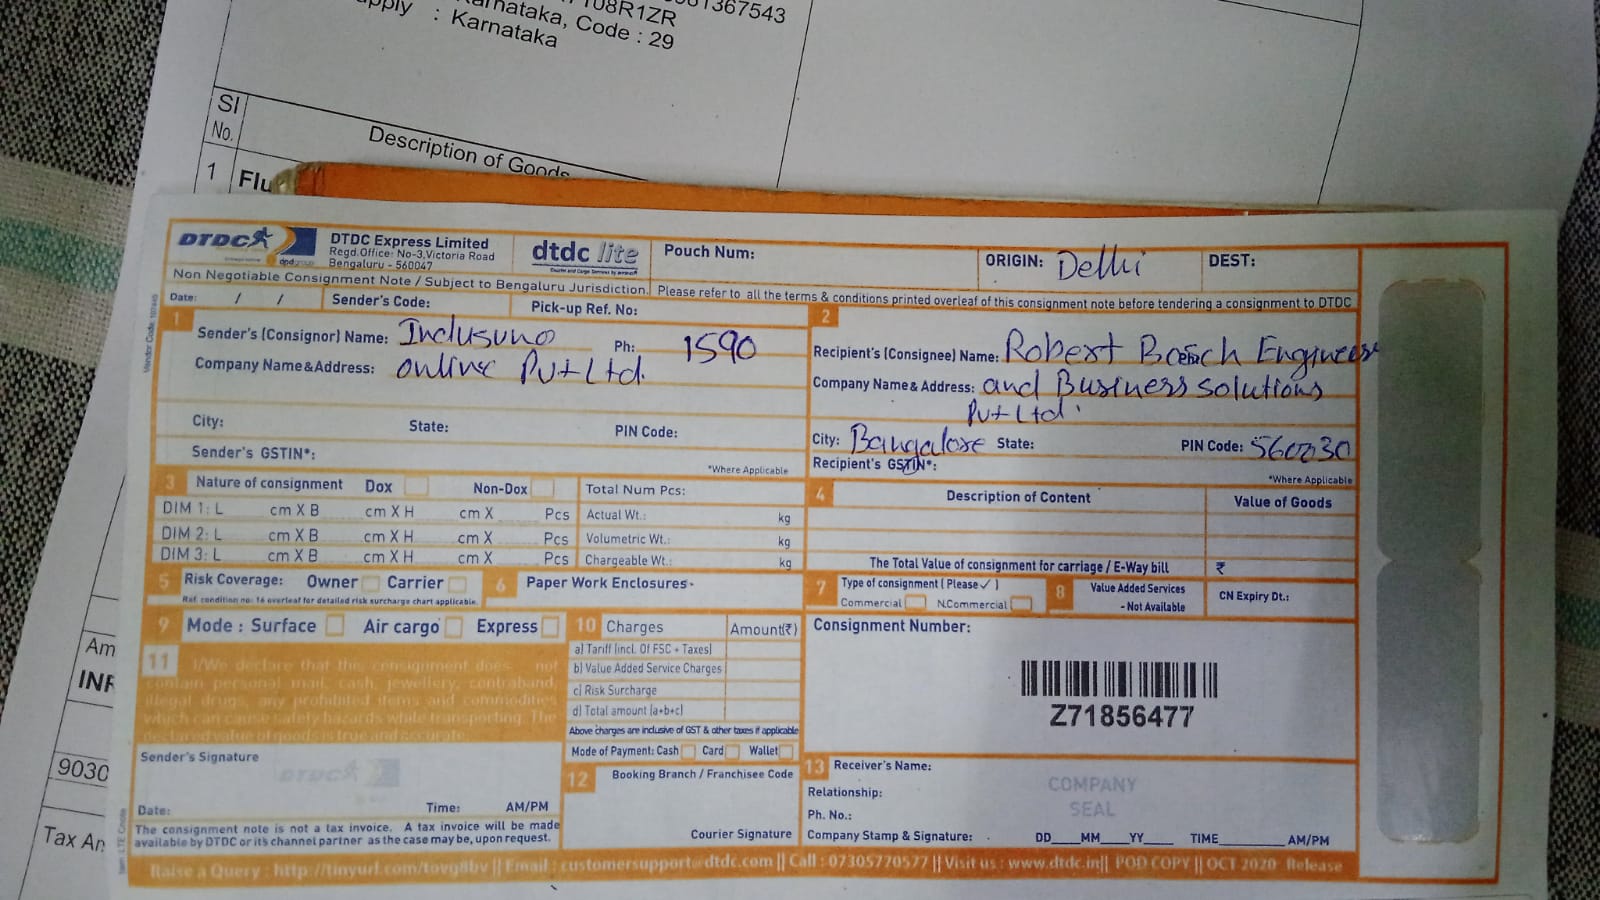 1367543
108R1ZR
Karnataka, Code : 29
: Karnataka
SI
No.
Description of Goods
1
Flu
DTDC
dpdgroup
DTDC Express Limited
Regd.Office: No-3,Victoria Road
Bengaluru - 560047
dtdc lite
Pouch Num:
ORIGIN: Delhi
DEST:
Non Negotiable Consignment Note / Subject to Bengaluru Jurisdiction.
Please refer to all the terms & conditions printed overleaf of this consignment note before tendering a consignment to DTDC
Date: / /
Sender's Code:
Pick-up Ref. No:
1
Sender's (Consignor) Name: Inclusuno
Ph: 1590
Company Name&Address: online Pvt Ltd.
City:
State:
PIN Code:
Sender's GSTIN*:
*Where Applicable
2
Recipient's (Consignee) Name: Robert Bosch Engineer
Company Name & Address: and Business solutions
Pvt Ltd.
City: Bangalore State:
PIN Code: 560030
Recipient's GSTIN*:
*Where Applicable
3 Nature of consignment Dox Non-Dox
Total Num Pcs:
DIM 1: L cm X B cm X H cm X Pcs
Actual Wt.: kg
DIM 2: L cm X B cm X H cm X Pcs
Volumetric Wt.: kg
DIM 3: L cm X B cm X H cm X Pcs
Chargeable Wt.: kg
4 Description of Content
Value of Goods
The Total Value of consignment for carriage / E-Way bill ₹
5 Risk Coverage: Owner Carrier
Ref. condition no: 16 overleaf for detailed risk surcharge chart applicable.
6 Paper Work Enclosures-
7 Type of consignment ( Please ✓ )
Commercial N.Commercial
8 Value Added Services
- Not Available
CN Expiry Dt.:
9 Mode : Surface Air cargo Express
10 Charges Amount(₹)
a) Tariff (incl. Of FSC + Taxes)
b) Value Added Service Charges
c) Risk Surcharge
d) Total amount (a+b+c)
Above charges are inclusive of GST & other taxes if applicable
Mode of Payment: Cash Card Wallet
11 I/We declare that this consignment does not
contain personal mail, cash, jewellery, contraband,
illegal drugs, any prohibited items and commodities
which can cause safety hazards while transporting. The
declared value of goods is true and accurate.
Sender's Signature
DTDC
Date:
Time: AM/PM
The consignment note is not a tax invoice. A tax invoice will be made
available by DTDC or its channel partner as the case may be, upon request.
12 Booking Branch / Franchisee Code
Courier Signature
Consignment Number:
Z71856477
13 Receiver's Name:
Relationship:
Ph. No.:
COMPANY
SEAL
Company Stamp & Signature:
DD MM YY TIME AM/PM
Raise a Query : http://tinyurl.com/tovg8bv || Email : customersupport@dtdc.com || Call : 07305770577 || Visit us : www.dtdc.in|| POD COPY || OCT 2020 Release
Am
INR
9030
Tax An